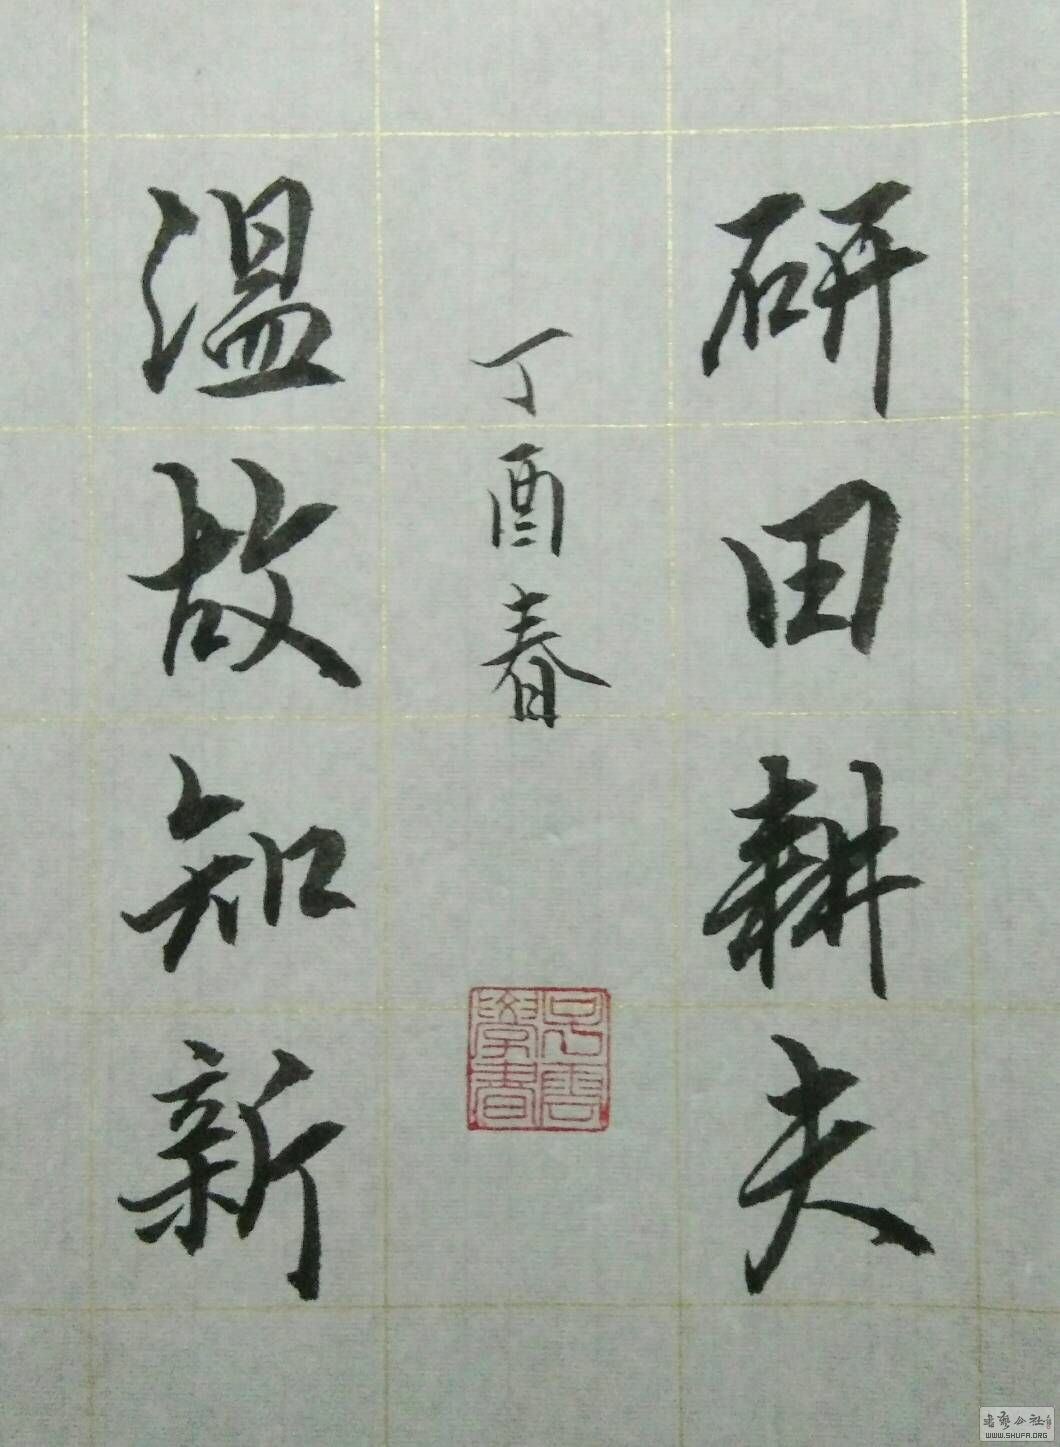 研田耕夫
丁酉春
温故知新
WWW.SHUFA.ORG